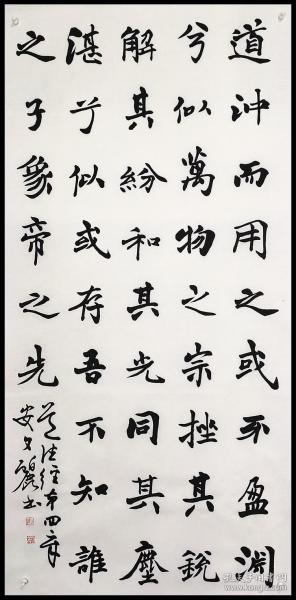 道沖而用之或不盈淵
兮似萬物之宗挫其銳
解其紛和其光同其塵
湛兮似或存吾不知誰
之子象帝之先
道德经第四章
安文麗书